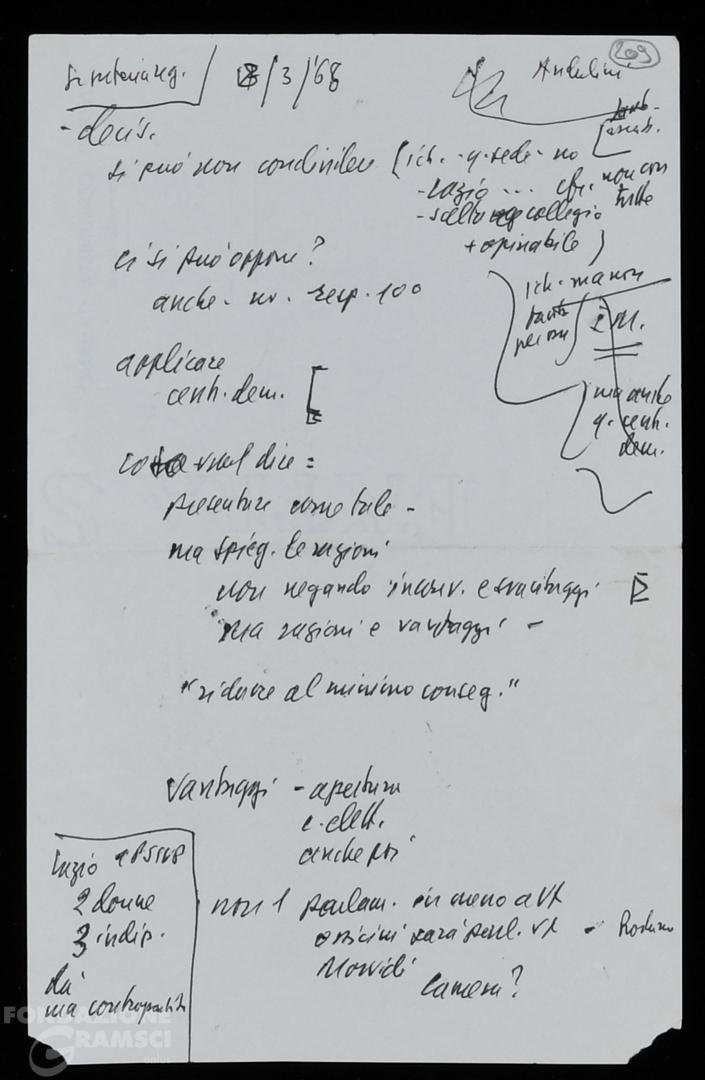 209
Segreteria reg. / 8/3/'68
Andulini
- decis.
si può non condividere (ich. - q. sede - no
- Lazio ... cfr. non con tutte
- collegio
+ opinabile)
ci si può opporre?
anche - no. resp. 100
ich. ma non
2 M.
applicare
centr. dem. [
ma anche
q. centr.
dem.
dice =
presentare come tale -
ma spieg. le ragioni
non negando inconv. e svantaggi
ma ragioni e vantaggi -
"ridurre al minimo conseg."
vantaggi - apertura
c. elett.
anche poi
Lazio 1 PSIUP
2 donne
3 indip.
dà
ma contropartite
non 1 parlam. in meno a VT
ossicini sarà parl. VT -
Morvidi
Camera?
FONDAZIONE
GRAMSCI
onlus